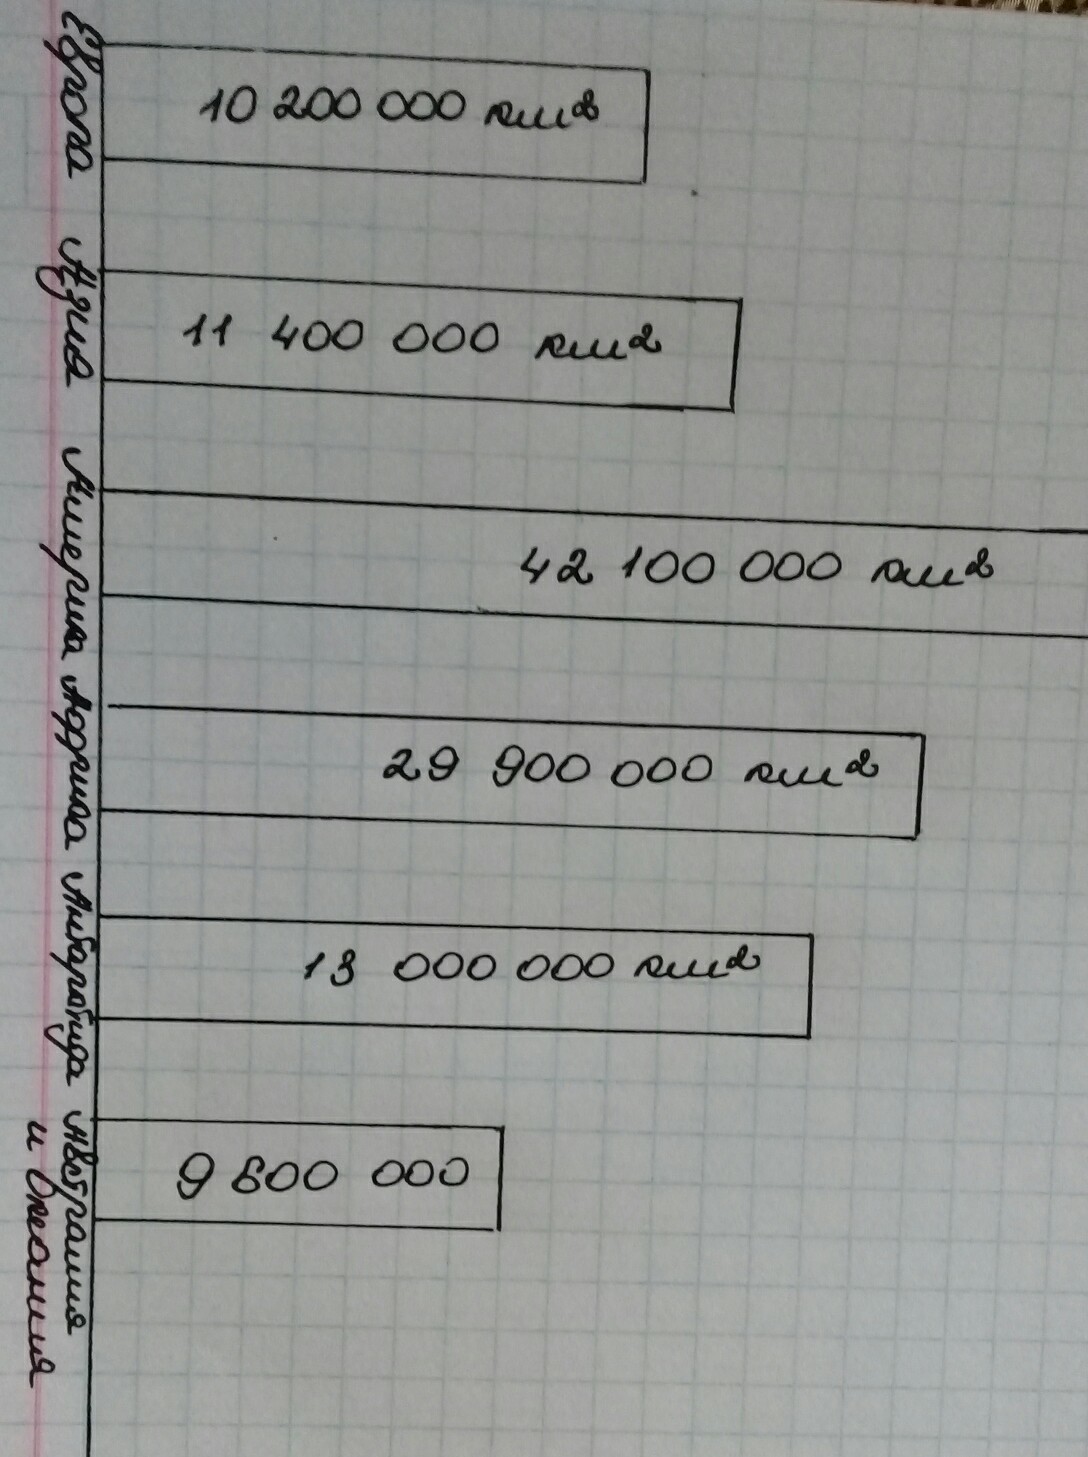 Европа
10 200 000 км²
Азия
11 400 000 км²
Америка
42 100 000 км²
Африка
29 900 000 км²
Антарктида
13 000 000 км²
Австралия
и Океания
9 600 000